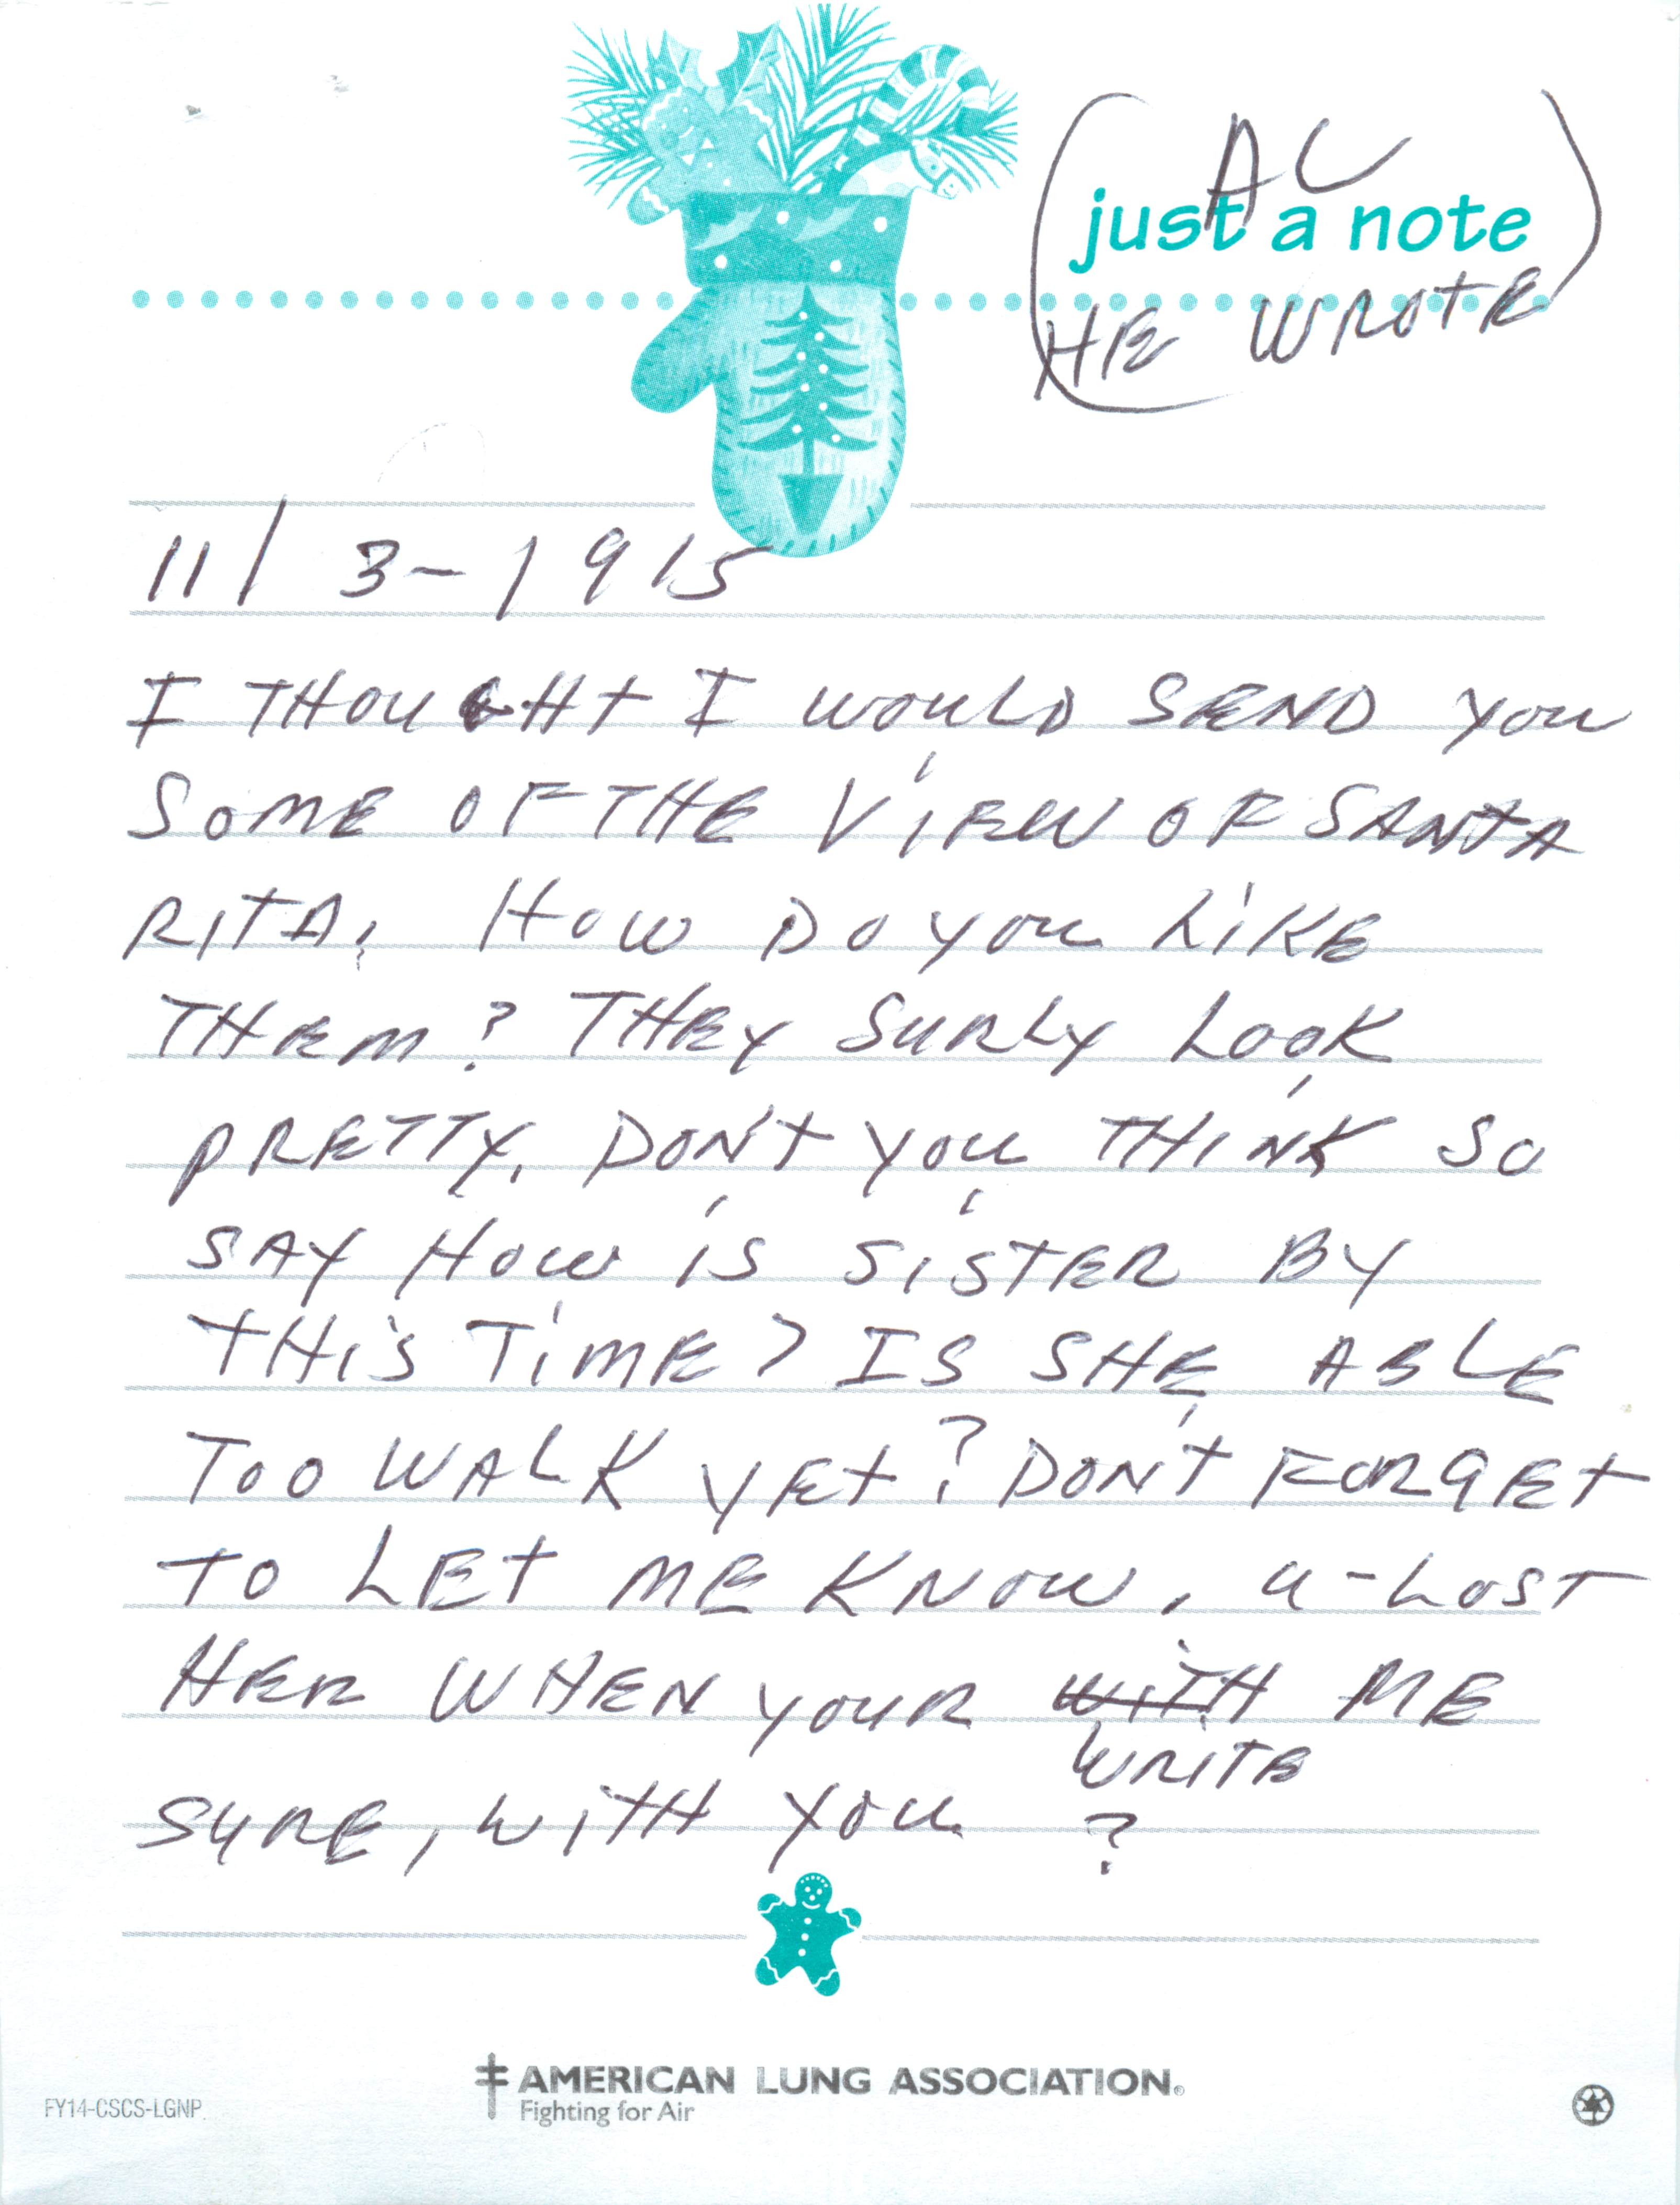 AC
just a note
HE WROTE
11/ 3-1915
I THOUGHT I WOULD SEND YOU
SOME OF THE VIEW OF SANTA
RITA. HOW DO YOU LIKE
THEM? THEY SURLY LOOK
PRETTY. DON'T YOU THINK SO
SAY HOW IS SISTER BY
THIS TIME? IS SHE ABLE
TOO WALK YET? DON'T FORGET
TO LET ME KNOW, U-LOST
HER WHEN YOUR WITH ME
WRITE
SURE, WITH YOU ?
AMERICAN LUNG ASSOCIATION®
Fighting for Air
FY14-CSCS-LGNP